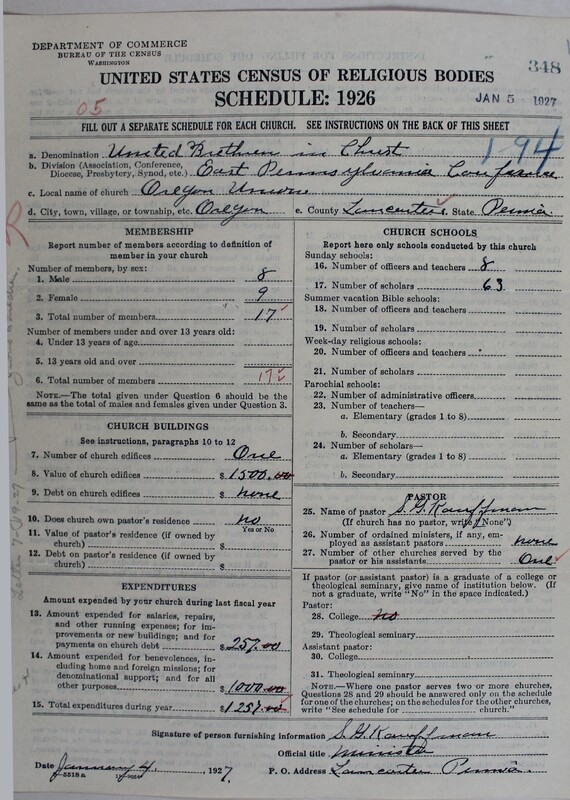 DEPARTMENT OF COMMERCE
BUREAU OF THE CENSUS
WASHINGTON
348
UNITED STATES CENSUS OF RELIGIOUS BODIES
SCHEDULE: 1926
JAN 5 1927
05
FILL OUT A SEPARATE SCHEDULE FOR EACH CHURCH. SEE INSTRUCTIONS ON THE BACK OF THIS SHEET
194
a. Denomination United Brethren in Christ
b. Division (Association, Conference,
Diocese, Presbytery, Synod, etc.) East Pennsylvania Conference
c. Local name of church Oregon Union
d. City, town, village, or township, etc. Oregon e. County Lancaster State. Penna
MEMBERSHIP
Report number of members according to definition of
member in your church
Number of members, by sex:
1. Male 8
2. Female 9
3. Total number of members 17
Number of members under and over 13 years old:
4. Under 13 years of age
5. 13 years old and over
6. Total number of members 17
NOTE.—The total given under Question 6 should be the
same as the total of males and females given under Question 3.
CHURCH BUILDINGS
See instructions, paragraphs 10 to 12
7. Number of church edifices One
8. Value of church edifices $ 1500.00
9. Debt on church edifices $ none
10. Does church own pastor's residence no
Yes or No
11. Value of pastor's residence (if owned by
church) $
12. Debt on pastor's residence (if owned by
church) $
EXPENDITURES
Amount expended by your church during last fiscal year
13. Amount expended for salaries, repairs,
and other running expenses; for im-
provements or new buildings; and for
payments on church debt $ 257.00
14. Amount expended for benevolences, in-
cluding home and foreign missions; for
denominational support; and for all
other purposes $ 1000.00
15. Total expenditures during year $ 1257.00
CHURCH SCHOOLS
Report here only schools conducted by this church
Sunday schools:
16. Number of officers and teachers 8
17. Number of scholars 63
Summer vacation Bible schools:
18. Number of officers and teachers
19. Number of scholars
Week-day religious schools:
20. Number of officers and teachers
21. Number of scholars
Parochial schools:
22. Number of administrative officers
23. Number of teachers—
a. Elementary (grades 1 to 8)
b. Secondary
24. Number of scholars—
a. Elementary (grades 1 to 8)
b. Secondary
PASTOR
25. Name of pastor S. G. Kauffman
(If church has no pastor, write "None")
26. Number of ordained ministers, if any, em-
ployed as assistant pastors none
27. Number of other churches served by the
pastor or his assistants One
If pastor (or assistant pastor) is a graduate of a college or
theological seminary, give name of institution below. (If
not a graduate, write "No" in the space indicated.)
Pastor:
28. College no
29. Theological seminary
Assistant pastor:
30. College
31. Theological seminary
NOTE.—Where one pastor serves two or more churches,
Questions 28 and 29 should be answered only on the schedule
for one of the churches; on the schedules for the other churches,
write "See schedule for church."
Signature of person furnishing information S. G. Kauffman
Official title Minister
Date January 4, 1927. P. O. Address Lancaster Penna.